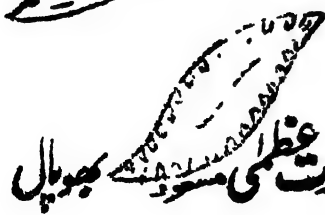 عظمیٰ مسعود بھوپال